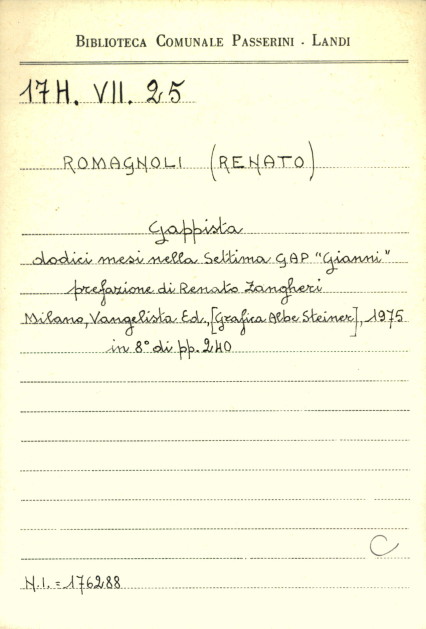 BIBLIOTECA COMUNALE PASSERINI - LANDI
17H. VII. 25
ROMAGNOLI (RENATO)
Gappista
dodici mesi nella Settima GAP "Gianni"
prefazione di Renato Zangheri
Milano, Vangelista Ed., [Grafica Albe Steiner], 1975
in 8° di pp. 240
C
N.I. = 176288